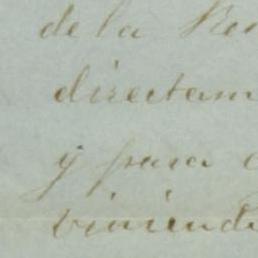 de la Re
directam
y para
viniendo